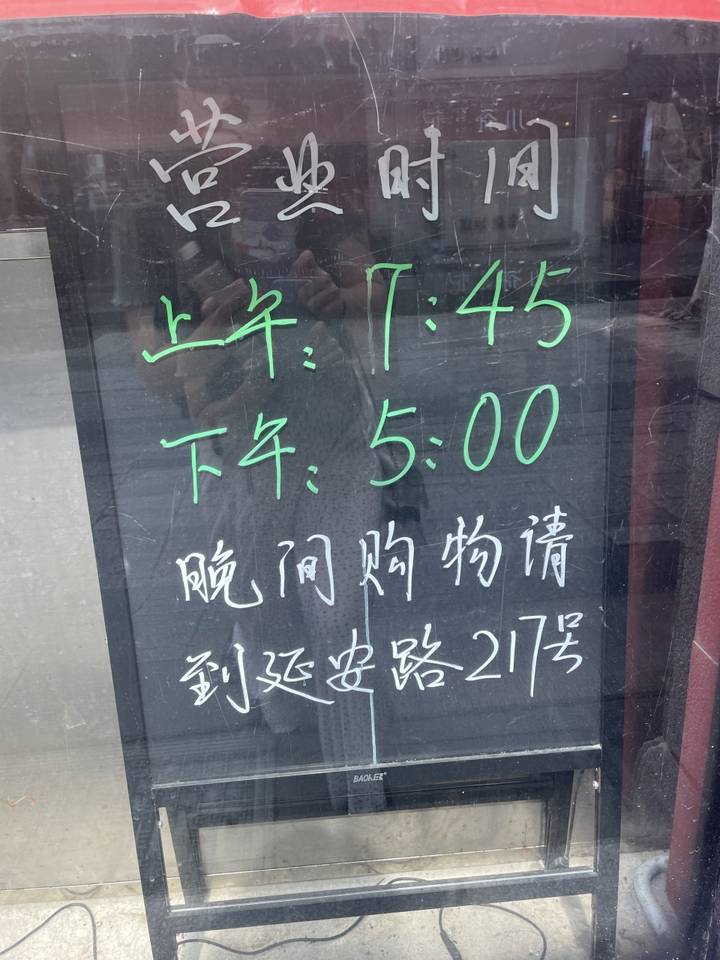 营业时间
上午：7:45
下午：5:00
晚间购物请
到延安路217号